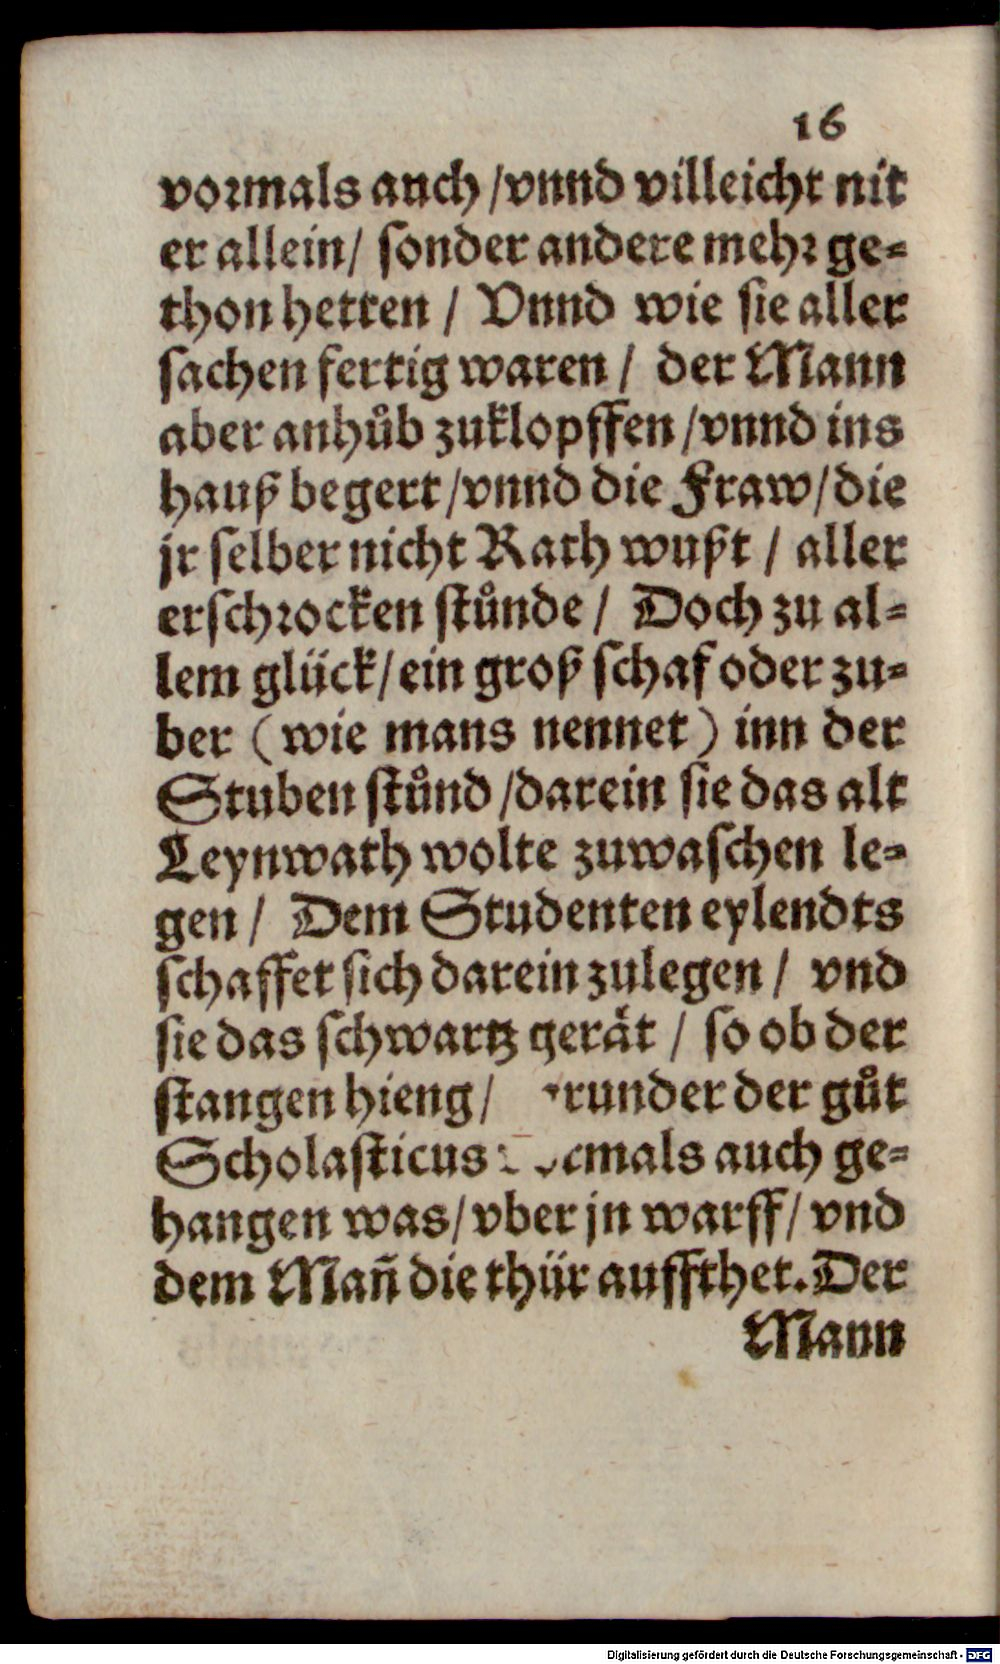 16
vormals auch / vnnd villeicht nit
er allein / sonder andere mehr ge⸗
thon hetten / Vnnd wie sie aller
sachen fertig waren / der Mann
aber anhůb zuklopffen / vnnd ins
hauß begert / vnnd die Fraw / die
jr selber nicht Rath wußt / aller
erschrocken stůnde / Doch zu al⸗
lem glück / ein groß schaf oder zu⸗
ber (wie mans nennet) inn der
Stuben stůnd / darein sie das alt
Leynwath wolte zuwaschen le⸗
gen / Dem Studenten eylendts
schaffet sich darein zulegen / vnd
sie das schwartz gerät / so ob der
stangen hieng / der gůt
Scholasticus auch ge⸗
hangen was / vber jn warff / vnd
dem Mañ die thür auffthet. Der
Mann
Digitalisierung gefördert durch die Deutsche Forschungsgemeinschaft - DFG